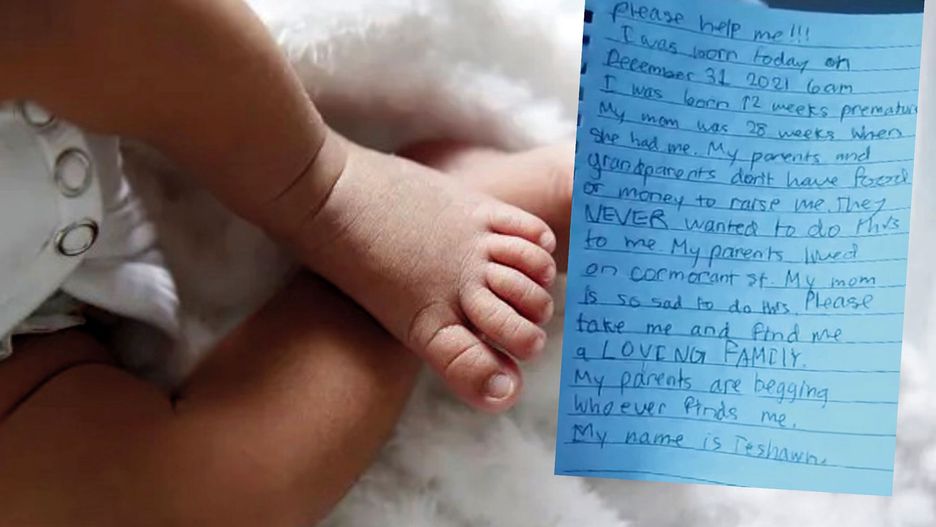 Please help me!!!
I was born today on
December 31 2021 6am
I was born 12 weeks premature
My mom was 28 weeks when
she had me. My parents and
grandparents don't have food
or money to raise me. They
NEVER wanted to do this
to me My parents lived
on cormorant st. My mom
is so sad to do this. Please
take me and find me
a LOVING FAMILY.
My parents are begging
whoever finds me.
My name is Teshawn.